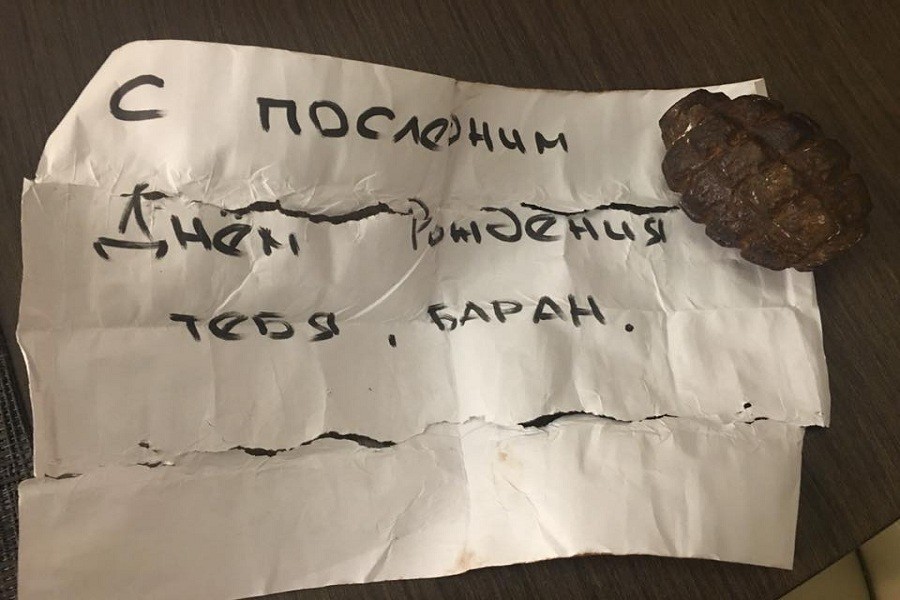 С ПОСЛЕДНИМ
ДНЁМ РОЖДЕНИЯ
ТЕБЯ, БАРАН.